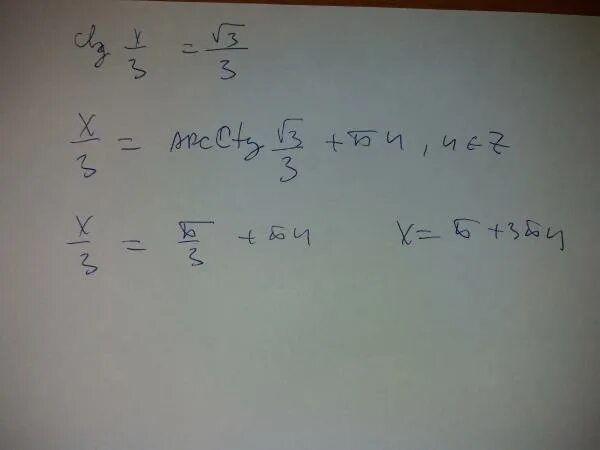 ctg x/3 = √3/3
x/3 = arcctg √3/3 + πn, n ∈ Z
x/3 = π/3 + πn x = π + 3πn